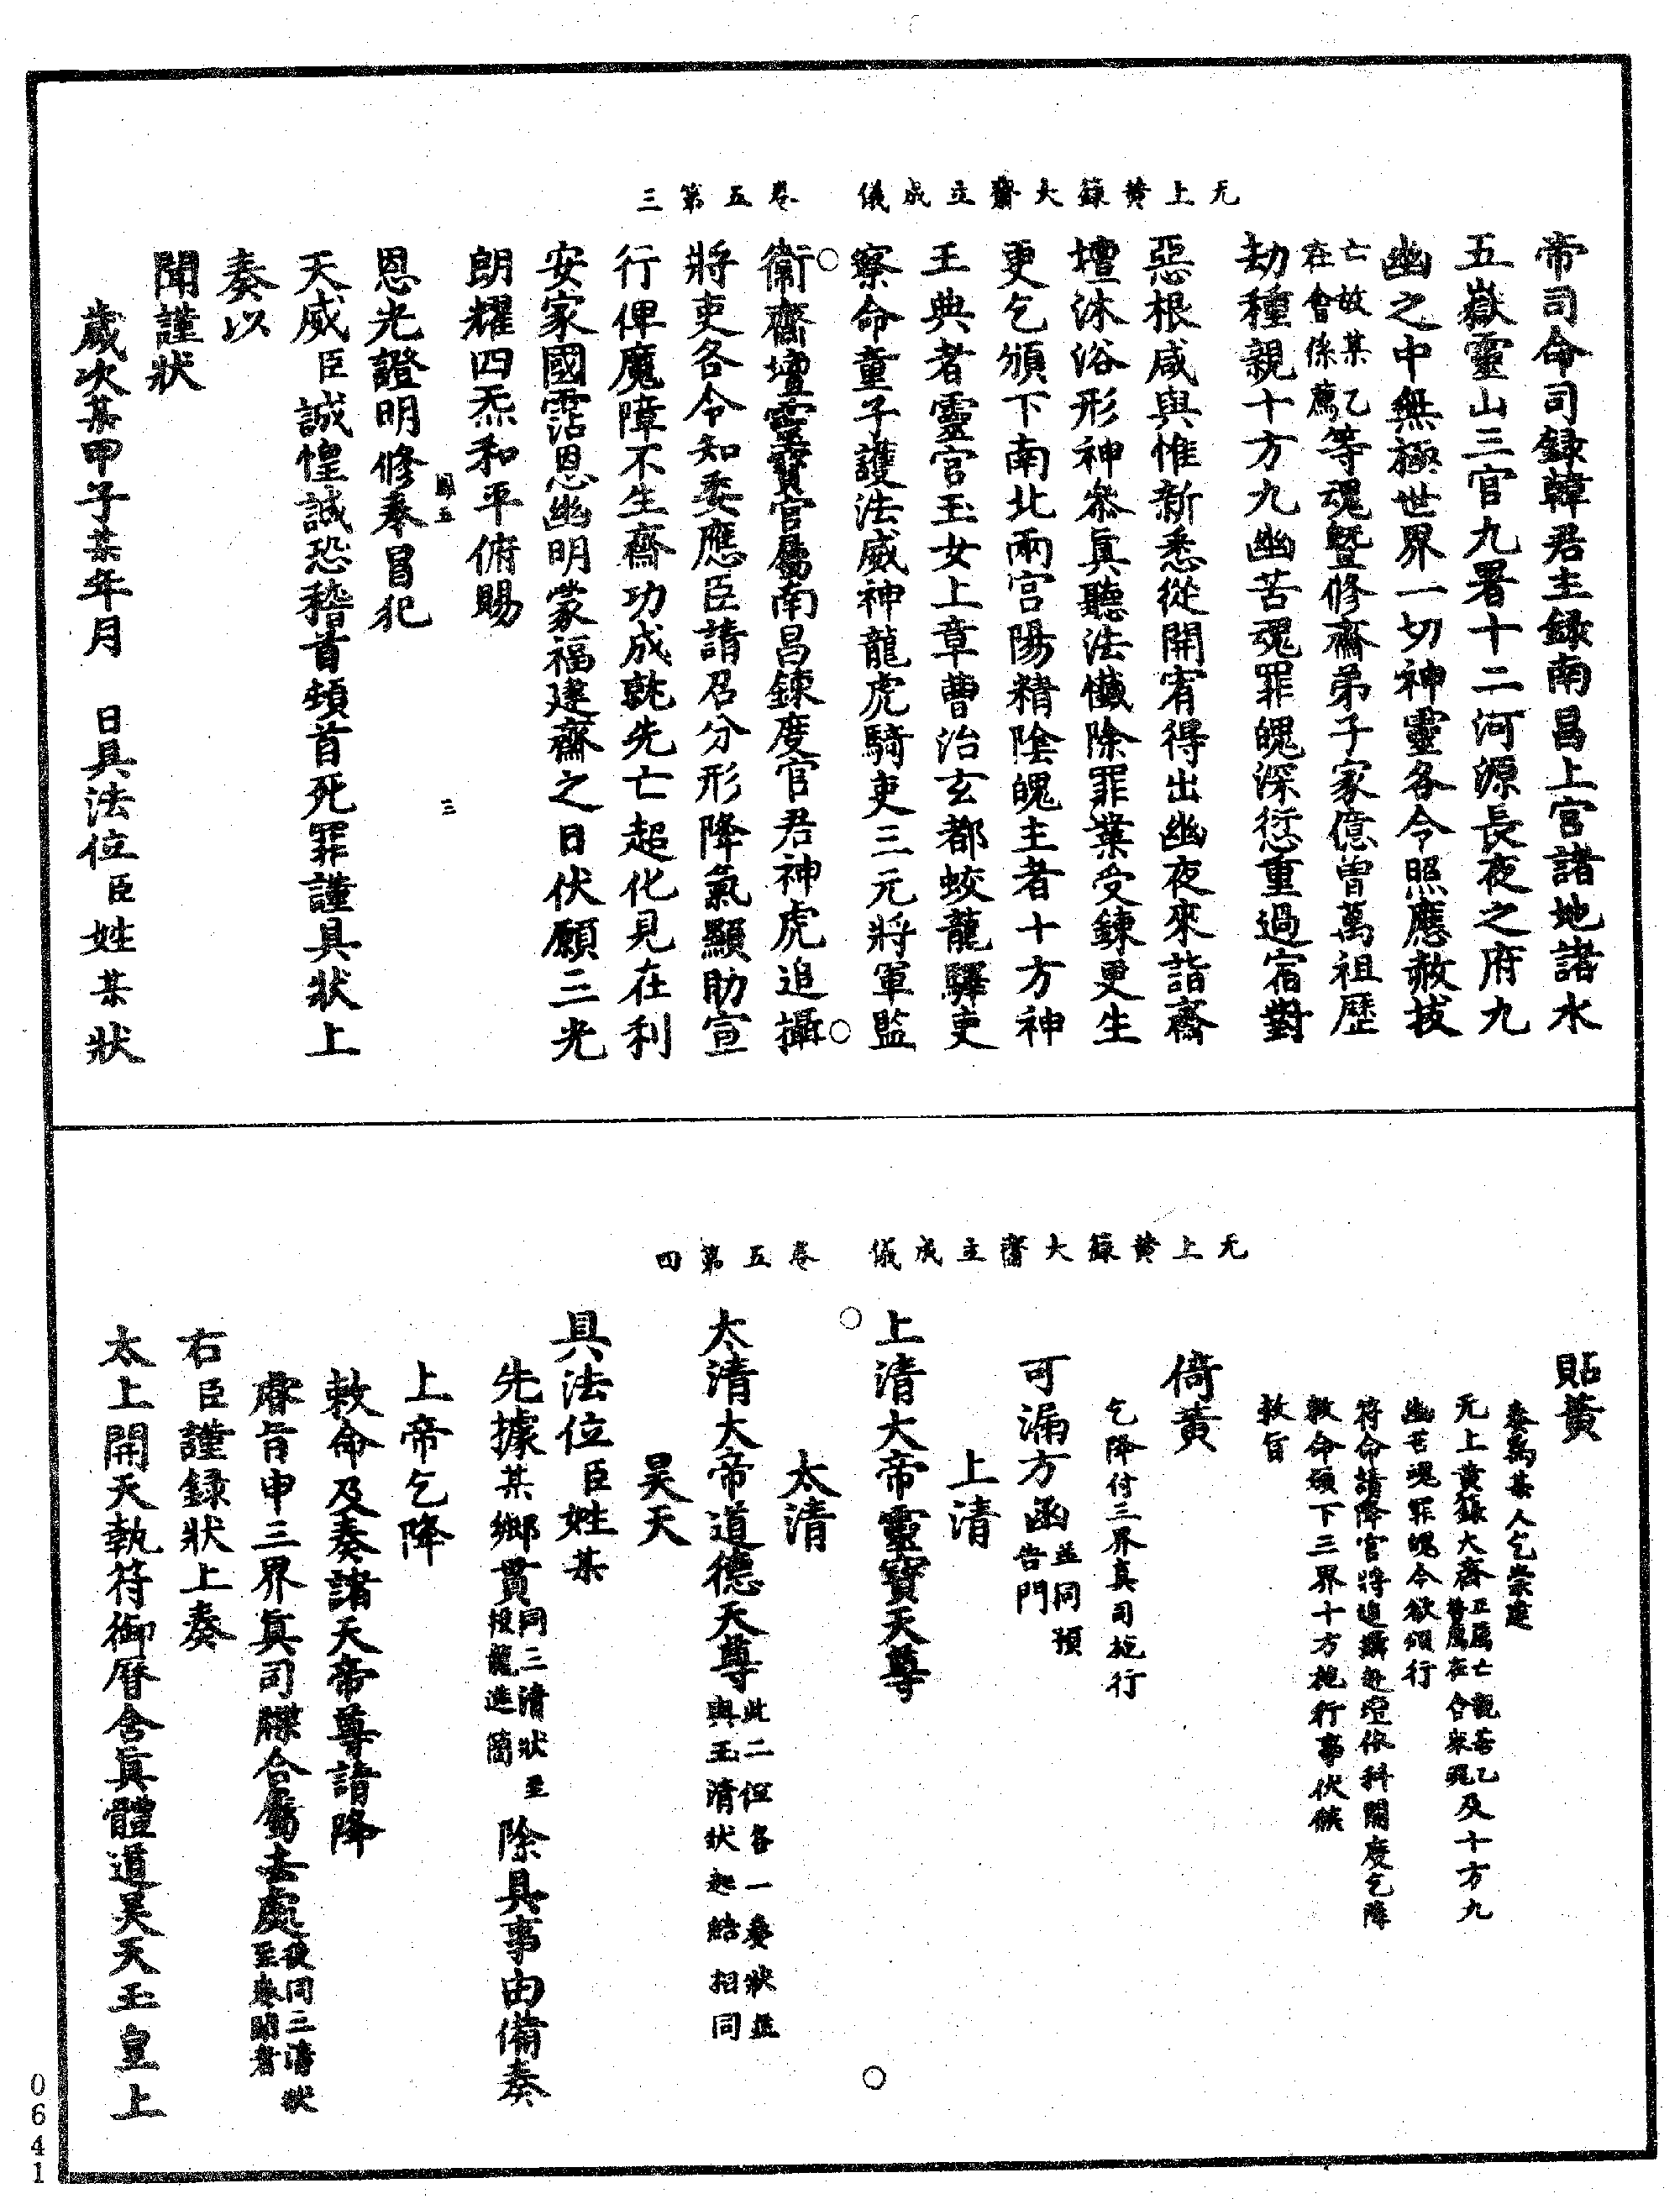 无上黃籙大齋立成儀　卷五第三
帝司命司録韓君主録南昌上宮諸地諸水
五嶽靈山三官九署十二河源長夜之府九
幽之中無極世界一切神靈各令照應赦拔
亡故某乙
在會係薦等魂曁修齋弟子家億曽萬祖歷
劫種親十方九幽苦魂罪魄深愆重過宿對
惡根咸與惟新悉從開宥得出幽夜來詣齋
壇沐浴形神叅眞聽法懺除罪業受錬更生
更乞頒下南北兩宮陽精陰魄主者十方神
王典者靈官玉女上章曹治玄都蛟龍驛吏
察命童子護法威神龍虎騎吏三元將軍監
衛齋壇靈寶官屬南昌錬度官君神虎追攝
將吏各令知委應臣請召分形降氣顯助宣
行俾魔障不生齋功成就先亡超化見在利
安家國霑恩幽明蒙福建齋之日伏願三光
朗耀四炁和平俯賜
恩光證明修奉冒犯
天威臣誠惶誠恐稽首頓首死罪謹具狀上
奏以
聞謹狀
歲次某甲子某年月　日具法位臣姓某狀
无上黃籙大齋立成儀　卷五第四
貼黃
奏爲某人乞崇建
无上黃籙大齋正薦亡觀某乙及十方九
幽苦魂罪魄今欲頒行
符命請降官將追攝赴壇依科開度乞降
敕命頒下三界十方施行事伏候
敕旨
倚黃
乞降付三界真司施行
可漏方函並同預
告門
上清
上清大帝靈寶天尊
太清
太清大帝道德天尊此二但各一奏狀並
與玉清狀起結相同
昊天
具法位臣姓某
先據某鄉貫同三清狀至
投龍進簡除具事由備奏
上帝乞降
敕命及奏諸天帝尊請降
睿旨申三界眞司牒合屬去處後同三清狀
至奏聞者
右臣謹録狀上奏
太上開天執符御曆含眞體道昊天玉皇上
0641